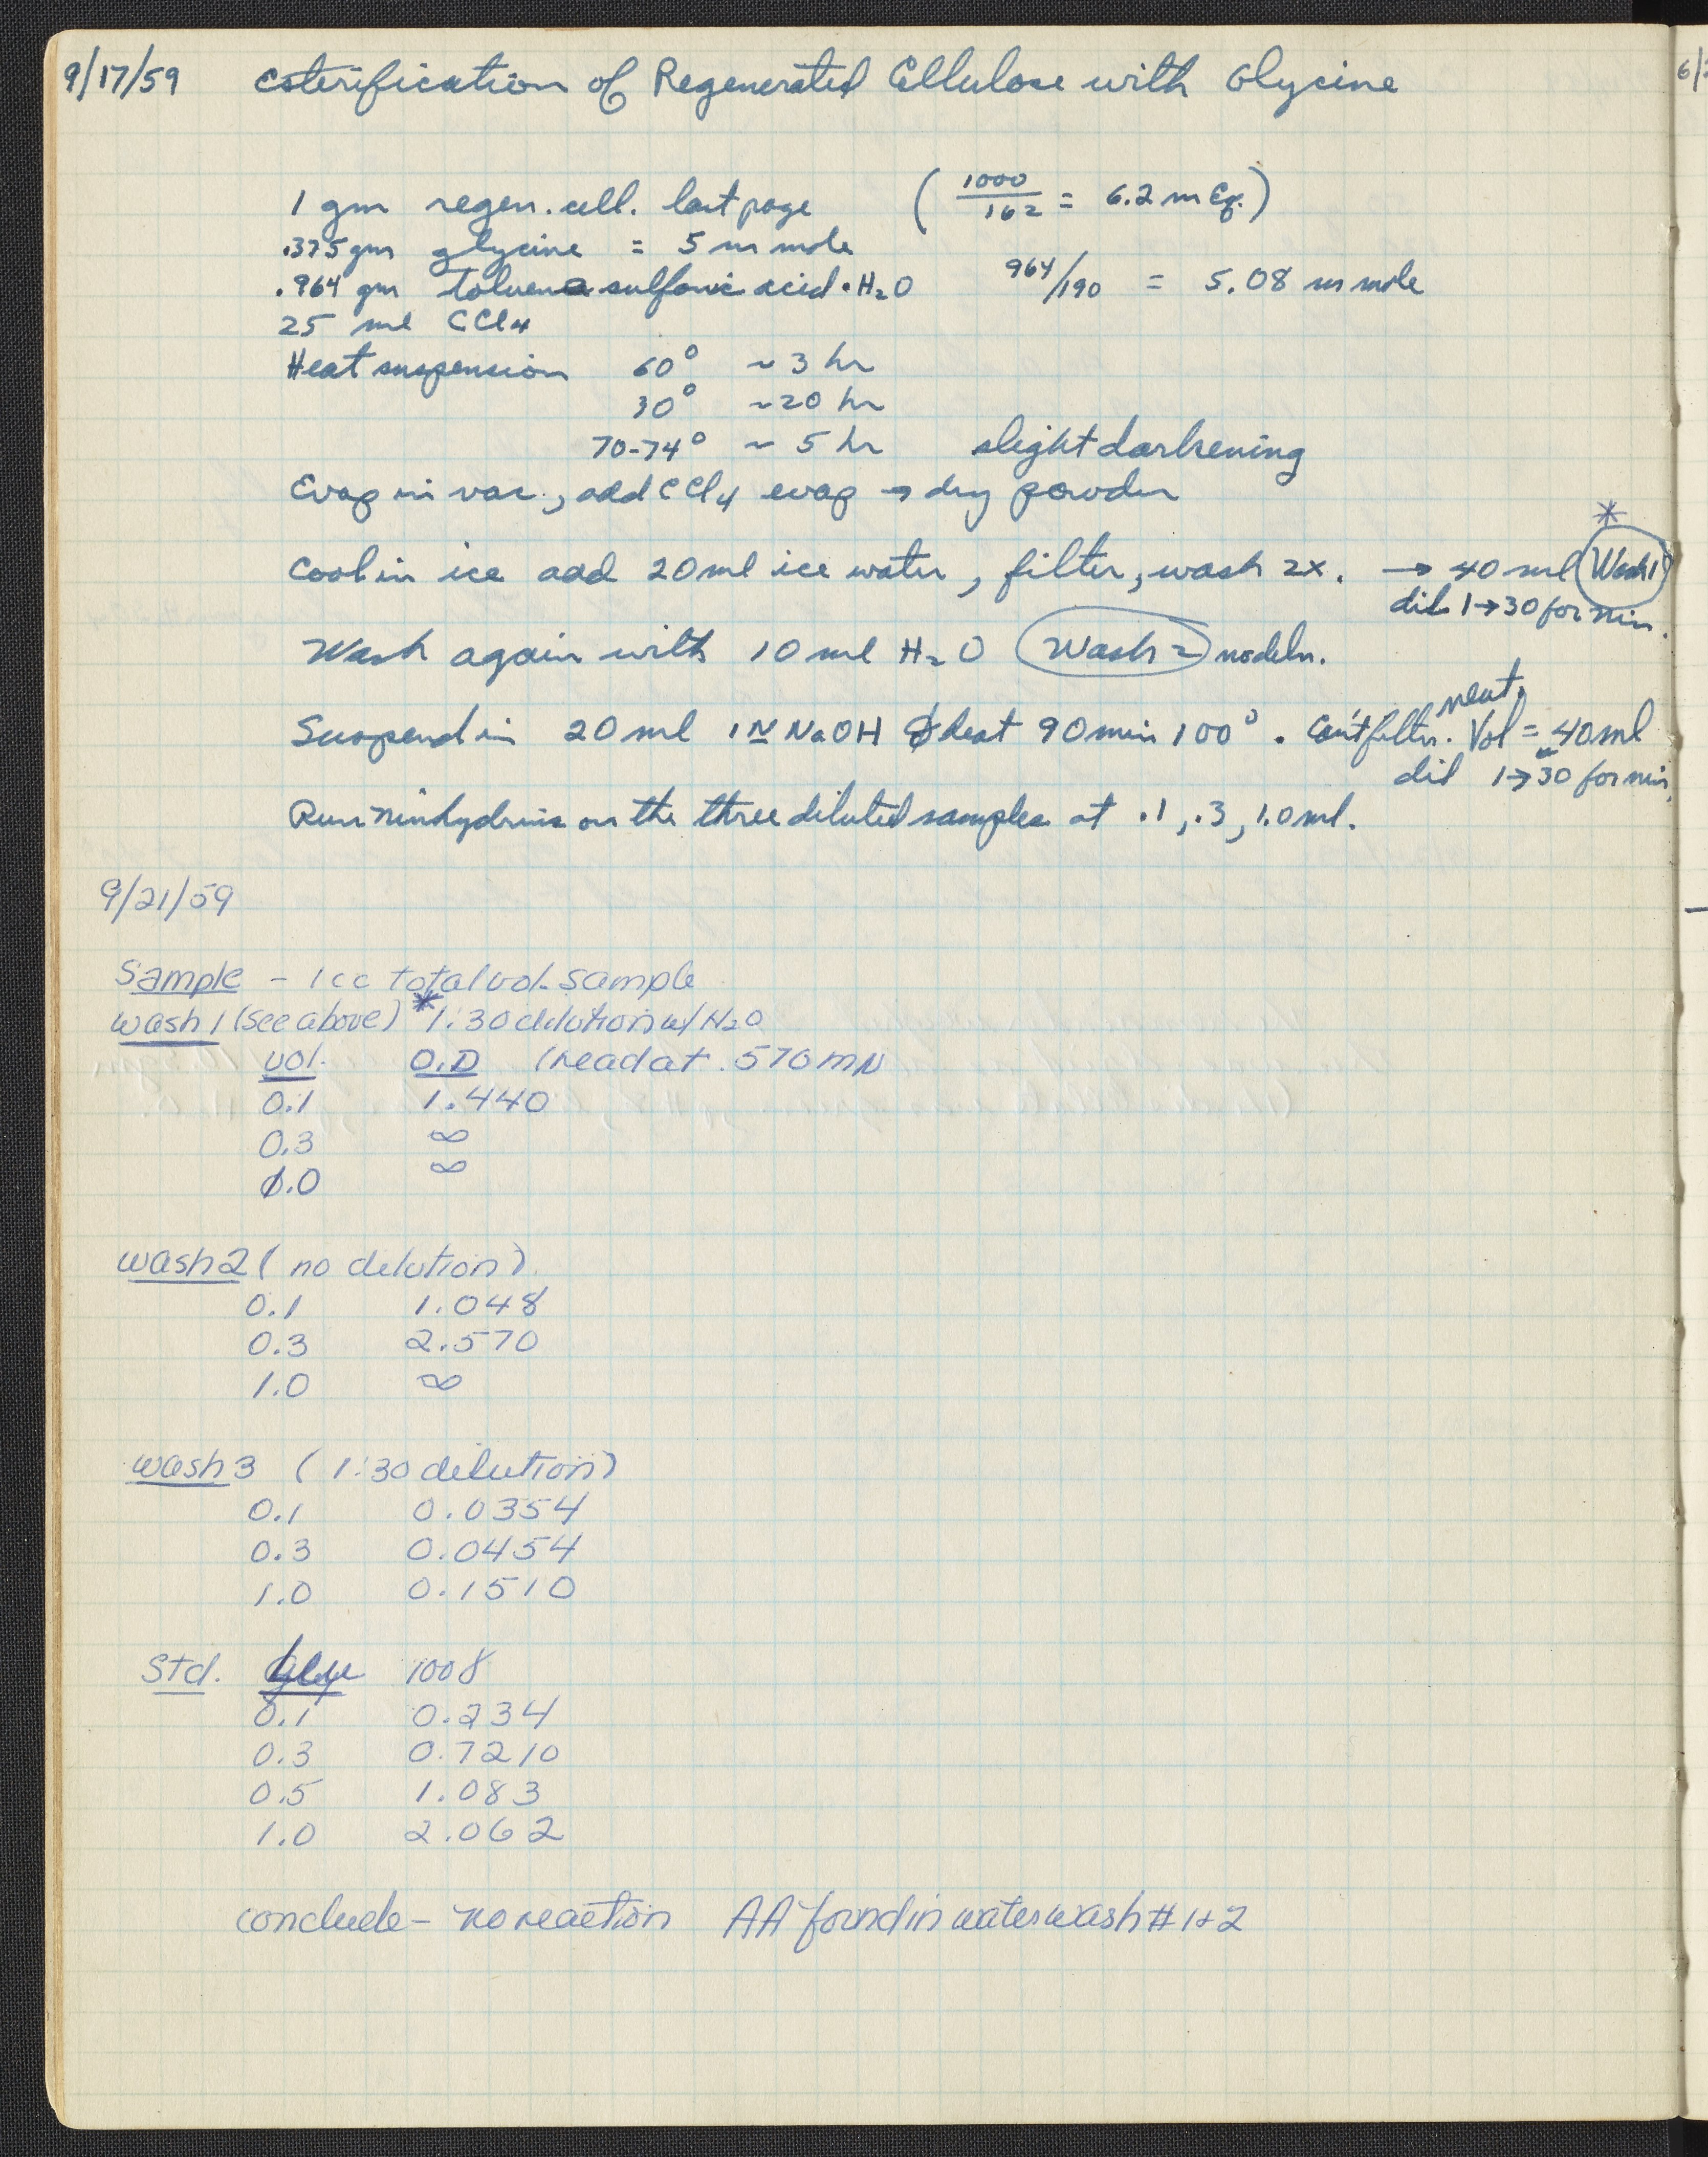 9/17/59 Esterification of Regenerated Cellulose with Glycine
1 gm regen. cell. last page ( 1000/162 = 6.2 m Eq. )
.375 gm glycine = 5 m mole
.964 gm toluene sulfonic acid · H2O 964/190 = 5.08 m mole
25 ml CCl4
Heat suspension 60° ~ 3 hr
30° ~20 hr
70-74° ~ 5 hr slight darkening
Evap in vac., add CCl4 evap → dry powder
*
Cool in ice add 20 ml ice water, filter, wash 2x. → 40 ml Wash 1
dil 1→30 for nin.
Wash again with 10 ml H2O Wash 2 no diln.
neut.
Suspend in 20 ml 1N NaOH & heat 90 min 100°. Can't filter. Vol = 40 ml
dil 1→30 for nin.
Run ninhydrin on the three diluted samples at .1, .3, 1.0 ml.
9/21/59
Sample - 1 cc total vol. sample
wash 1 (see above) * 1:30 dilution w/ H2O
vol. O.D (read at .570 mµ
0.1 1.440
0.3 ∞
1.0 ∞
wash 2 ( no dilution )
0.1 1.048
0.3 2.570
1.0 ∞
wash 3 ( 1:30 dilution )
0.1 0.0354
0.3 0.0454
1.0 0.1510
Std. Gly 100 γ
0.1 0.234
0.3 0.7210
0.5 1.083
1.0 2.062
conclude - no reaction AA found in water wash # 1+2